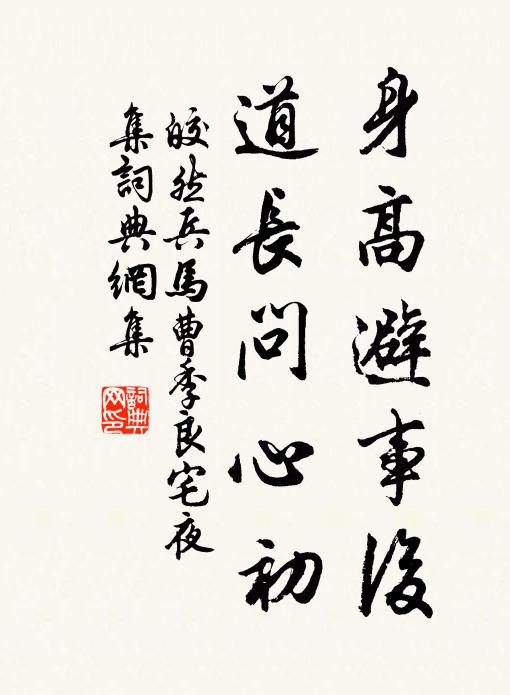 身高避事後
道長問心初
皎然兵馬曹季良宅夜
集詞典網集
詞典網印